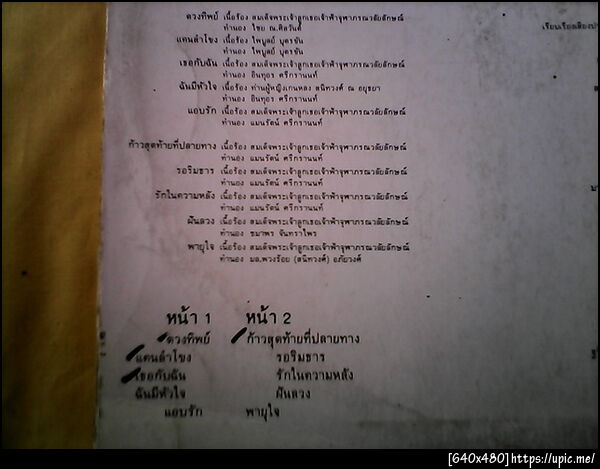 ดวงทิพย์ เนื้อร้อง สมเด็จพระเจ้าลูกเธอเจ้าฟ้าจุฬาภรณวลัยลักษณ์
ทำนอง ไชย ณ.ศิลวันต์
เรียบเรียงเสียง
แคนลำโขง เนื้อร้อง ไพบูลย์ บุตรขัน
ทำนอง ไพบูลย์ บุตรขัน
เธอกับฉัน เนื้อร้อง สมเด็จพระเจ้าลูกเธอเจ้าฟ้าจุฬาภรณวลัยลักษณ์
ทำนอง อินทุอร ศรีกรานนท์
ฉันมีหัวใจ เนื้อร้อง ท่านผู้หญิงเกนหลง สนิทวงศ์ ณ อยุธยา
ทำนอง อินทุอร ศรีกรานนท์
แอบรัก เนื้อร้อง สมเด็จพระเจ้าลูกเธอเจ้าฟ้าจุฬาภรณวลัยลักษณ์
ทำนอง แมนรัตน์ ศรีกรานนท์
ก้าวสุดท้ายที่ปลายทาง เนื้อร้อง สมเด็จพระเจ้าลูกเธอเจ้าฟ้าจุฬาภรณวลัยลักษณ์
ทำนอง แมนรัตน์ ศรีกรานนท์
รอริมธาร เนื้อร้อง สมเด็จพระเจ้าลูกเธอเจ้าฟ้าจุฬาภรณวลัยลักษณ์
ทำนอง แมนรัตน์ ศรีกรานนท์
รักในความหลัง เนื้อร้อง สมเด็จพระเจ้าลูกเธอเจ้าฟ้าจุฬาภรณวลัยลักษณ์
ทำนอง แมนรัตน์ ศรีกรานนท์
ฝันลวง เนื้อร้อง สมเด็จพระเจ้าลูกเธอเจ้าฟ้าจุฬาภรณวลัยลักษณ์
ทำนอง ชมาพร จันทราไพร
พายุใจ เนื้อร้อง สมเด็จพระเจ้าลูกเธอเจ้าฟ้าจุฬาภรณวลัยลักษณ์
ทำนอง มล.พวงร้อย (สนิทวงศ์) อภัยวงศ์
หน้า 1 หน้า 2
ดวงทิพย์ ก้าวสุดท้ายที่ปลายทาง
แคนลำโขง รอริมธาร
เธอกับฉัน รักในความหลัง
ฉันมีหัวใจ ฝันลวง
แอบรัก พายุใจ
[640x480]https://upic.me/